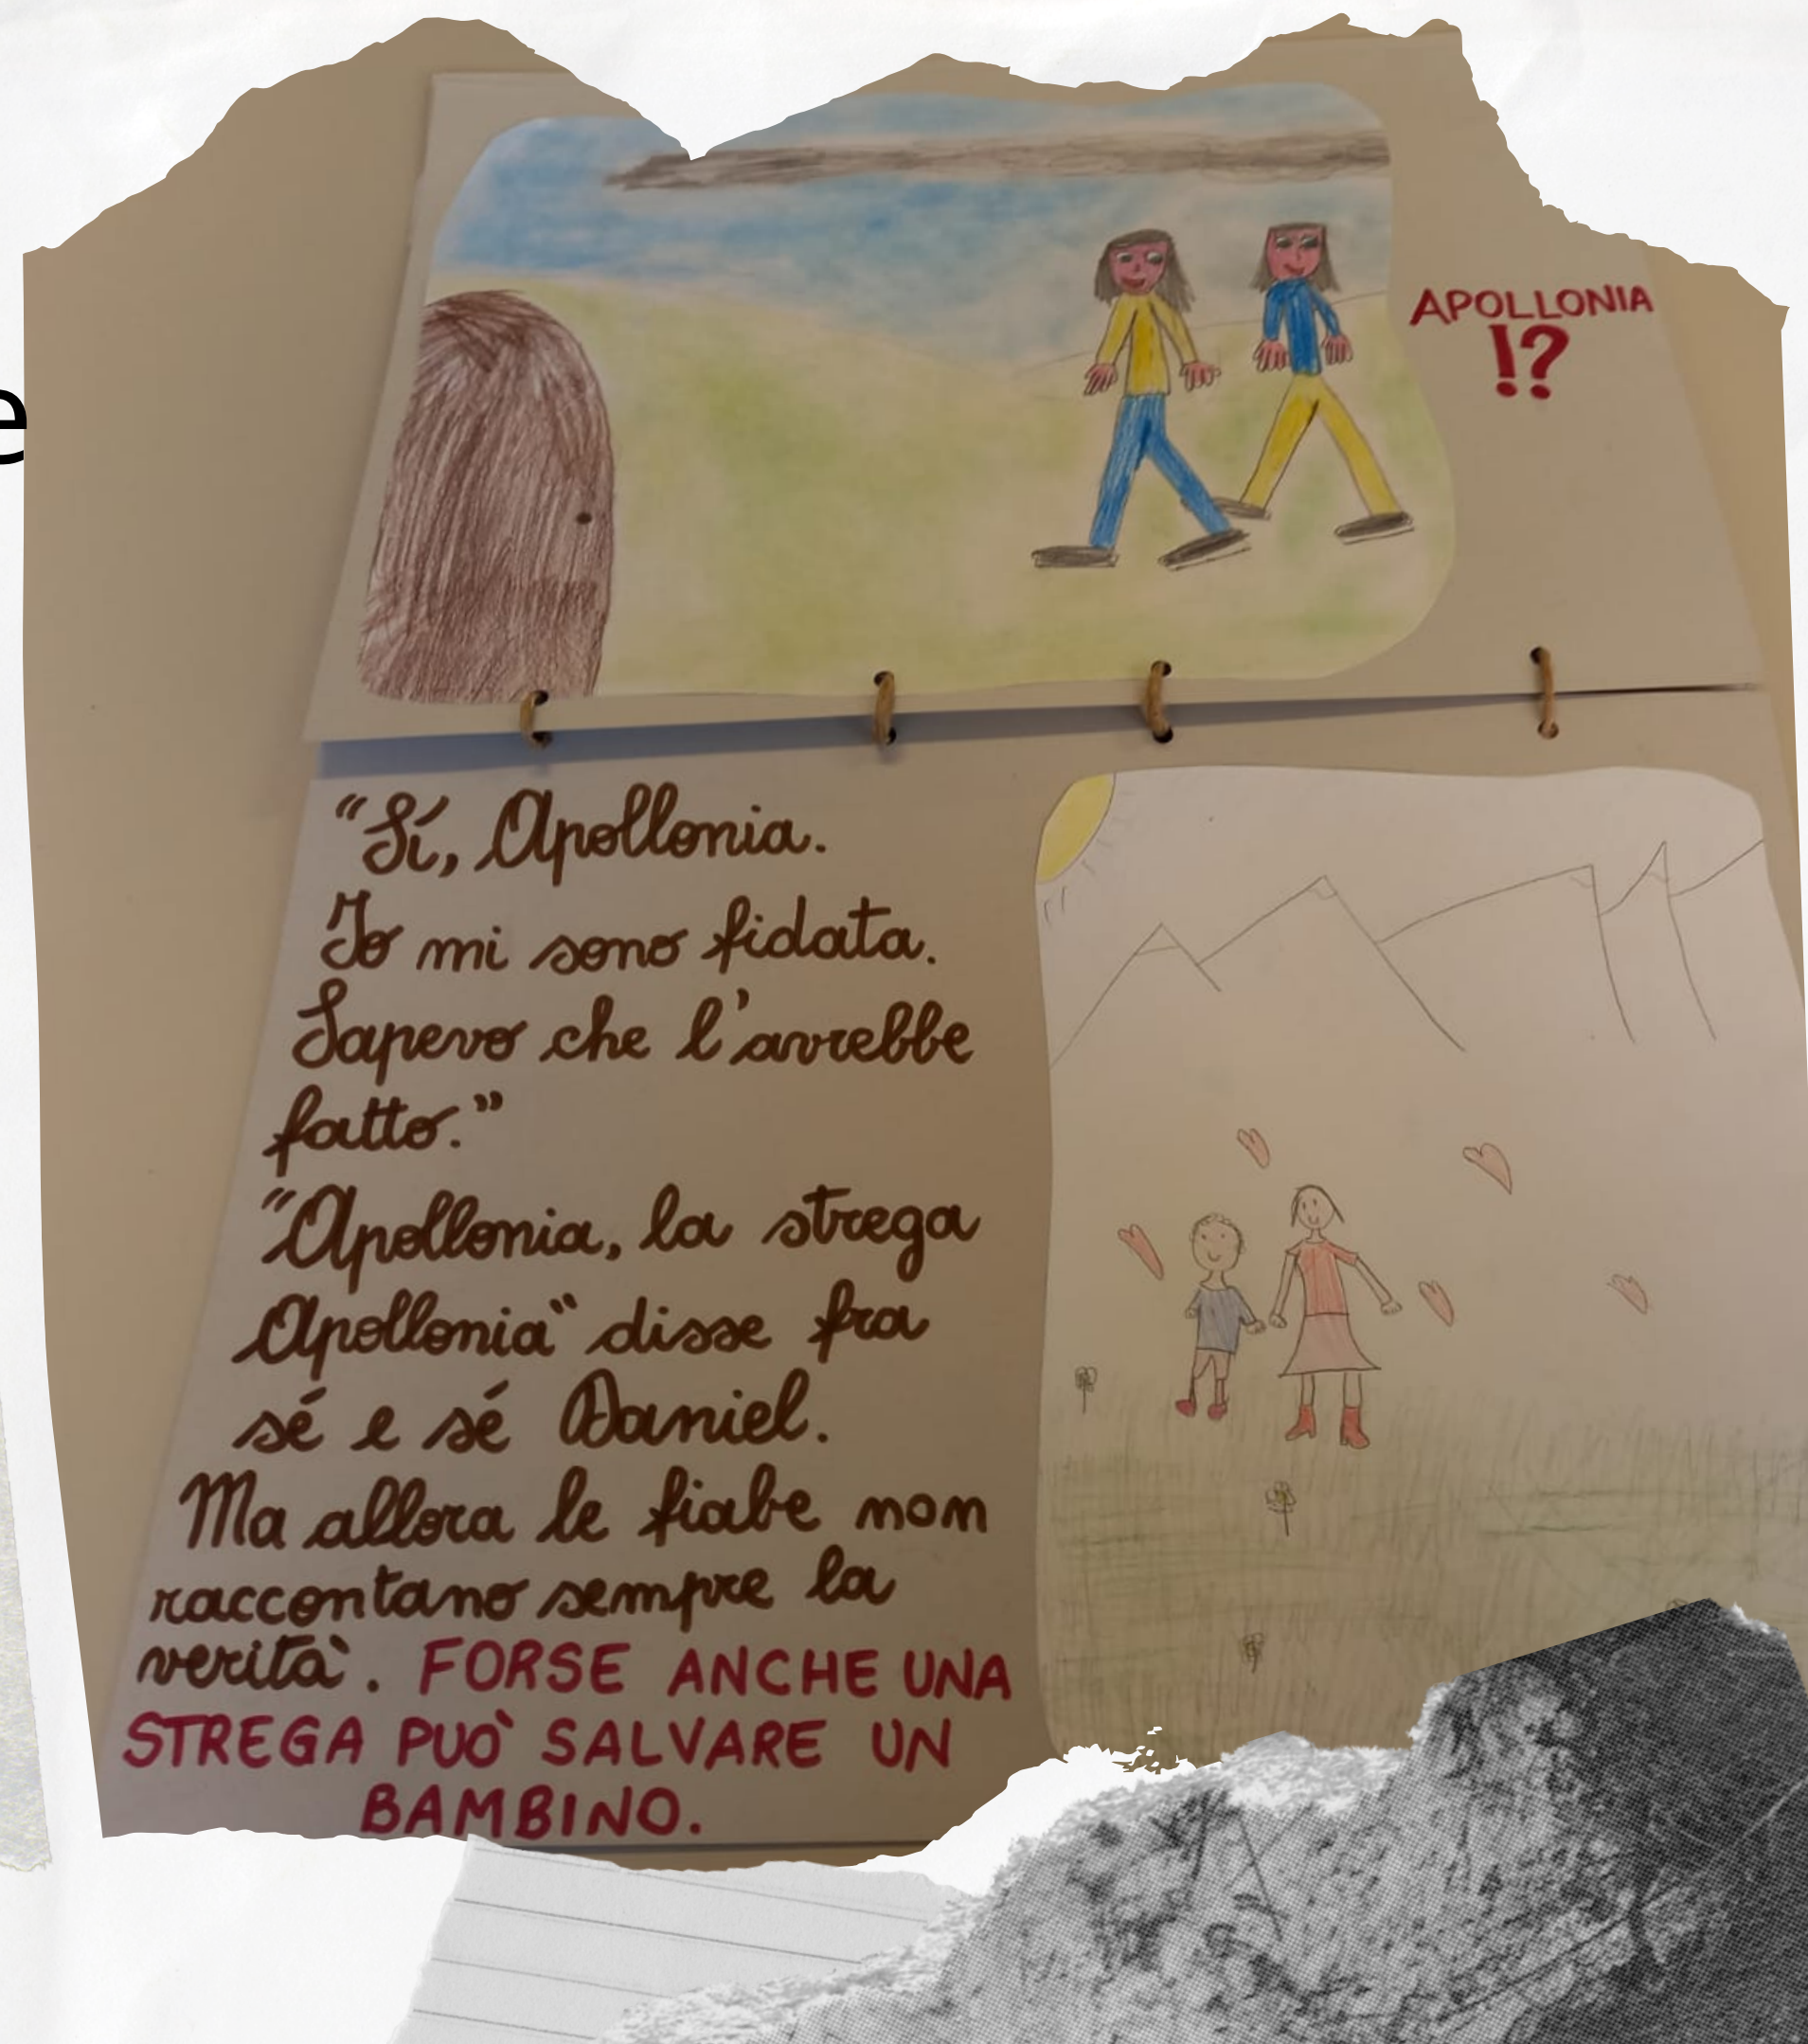 e
APOLLONIA
!?
“Sí, Apollonia.
Io mi sono fidata.
Sapevo che l'avrebbe
fatto.”
“Apollonia, la strega
Apollonia“ disse fra
sé e sé Daniel.
Ma allora le fiabe non
raccontano sempre la
verità. FORSE ANCHE UNA
STREGA PUÒ SALVARE UN
BAMBINO.